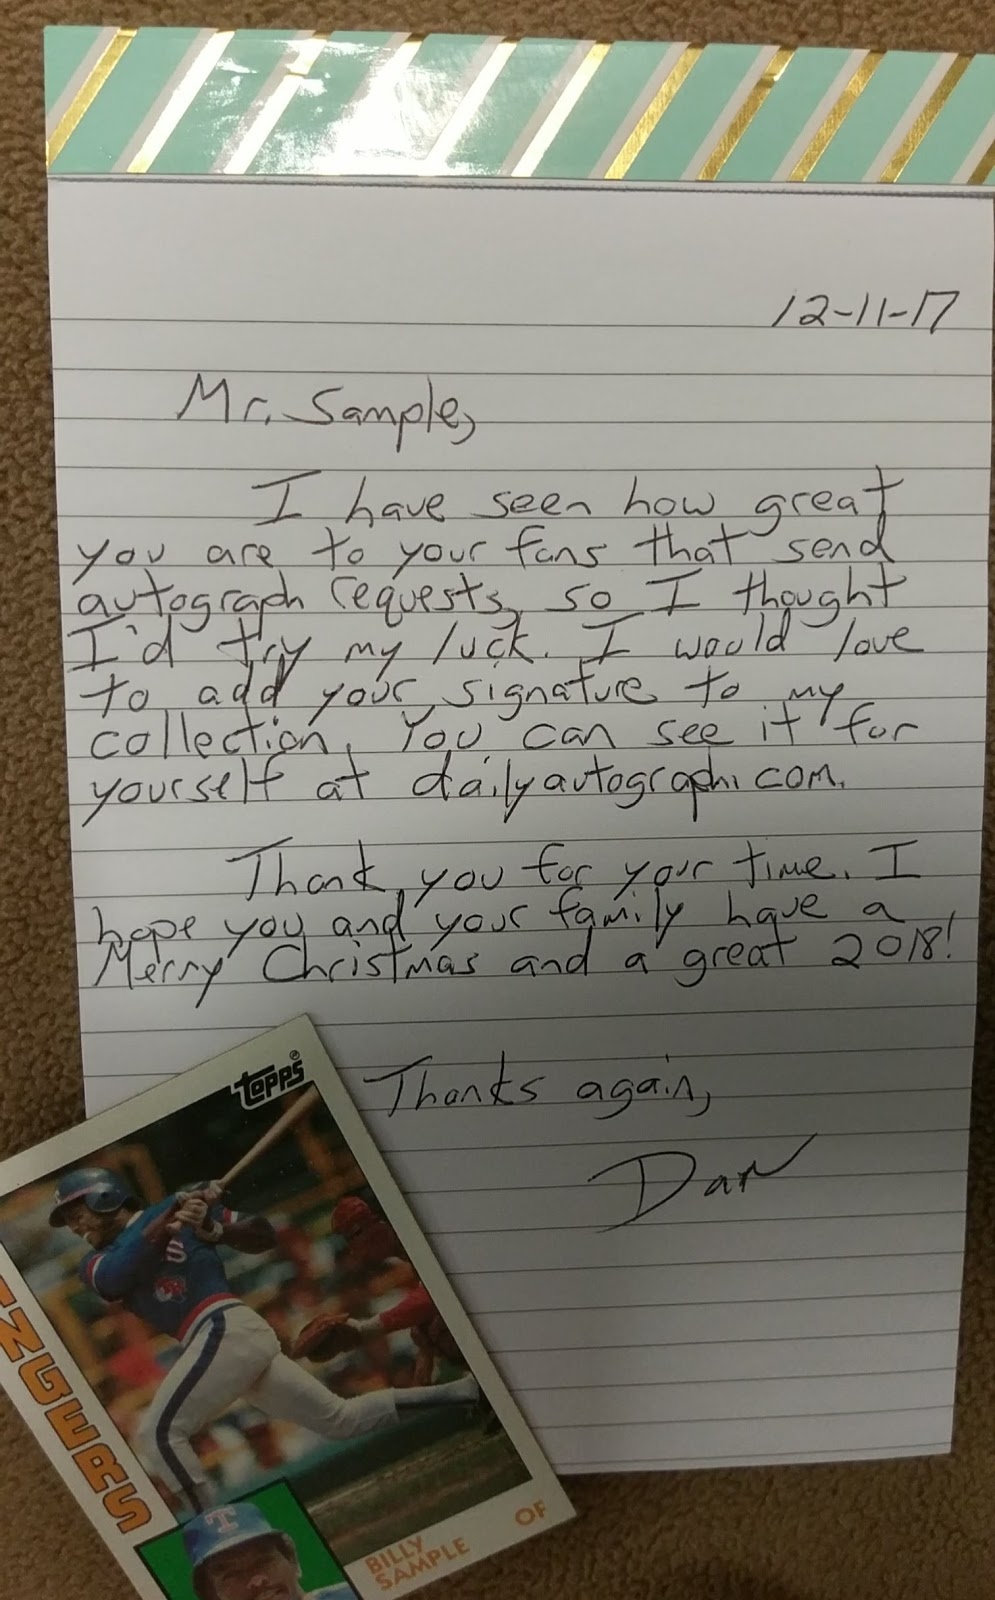 12-11-17
Mr. Sample,
I have seen how great
you are to your fans that send
autograph requests, so I thought
I'd try my luck. I would love
to add your signature to my
collection. You can see it for
yourself at dailyautograph.com.
Thank you for your time. I
hope you and your family have a
Merry Christmas and a great 2018!
Thanks again,
Dan
topps®
NGERS
BILLY
SAMPLE
OF
T